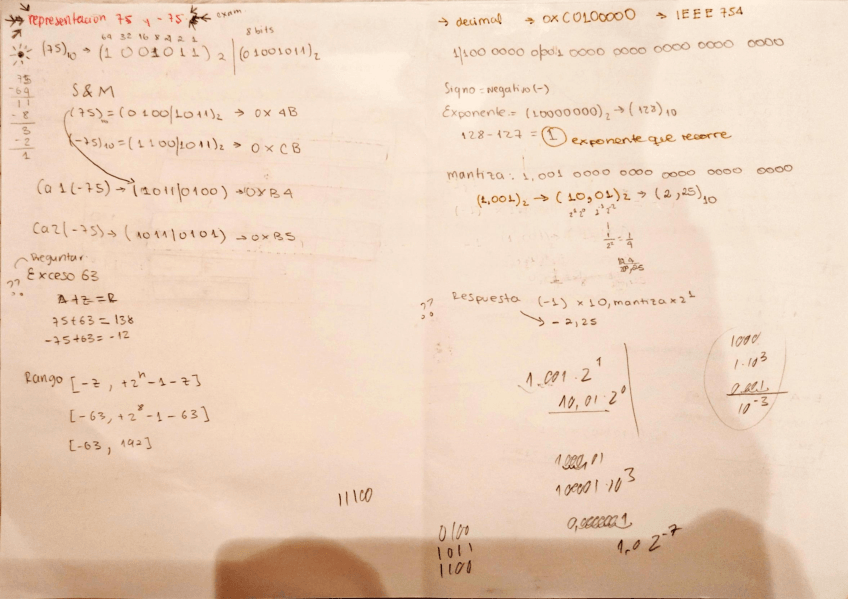 representación 75 y -75 exam
64 32 16 8 4 2 1
8 bits
(75)10 → (1 0 0 1 0 1 1)2 | (01001011)2
75
-64
11
- 8
3
- 2
1
S & M
(75)10 = (0100|1011)2 → 0x 4B
(-75)10 = (1100|1011)2 → 0x CB
Ca1(-75) → (1011|0100) → 0xB4
Ca2(-75) → (1011|0101) → 0xB5
Preguntar
?? Exceso 63
A+Z=R
75+63 = 138
-75+63 = -12
Rango [-Z, +2^n-1-Z]
[-63, +2^8-1-63]
[-63, 192]
11100
→ decimal → 0xC0100000 → IEEE 754
1|100 0000 0|001 0000 0000 0000 0000 0000
Signo = negativo(-)
Exponente = (10000000)2 → (128)10
128-127 = 1 exponente que recorre
mantiza: 1,001 0000 0000 0000 0000 0000
(1,001)2 → (10,01)2 → (2,25)10
2^1 2^0 2^-1 2^-2
1/2^2 = 1/4
?? Respuesta (-1) x 10, mantiza x 2^1
→ - 2,25
1.001 · 2^1
10,01 · 2^0
1000
1·10^3
0,001
10^-3
10001·10^3
0100
1011
1100
1,0 2^-7